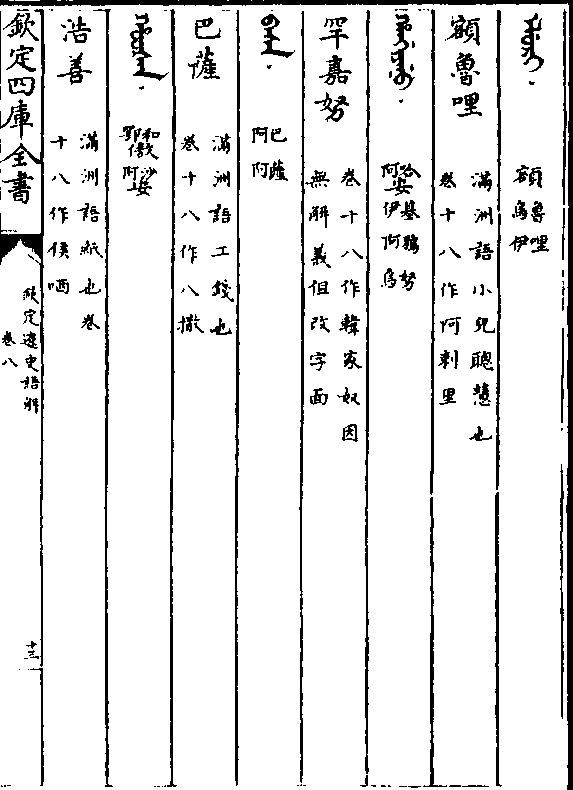 ᡝᠯᡠᡵᡳ
額魯哩
烏伊
額魯哩
滿洲語小兒聰慧也
卷十八作阿剌里
ᡥᠠᠨᡤᡳᠶᠠᠨᡠ
哈安基鴉努
阿伊阿烏
罕嘉努
卷十八作韓家奴因
無解義但改字面
ᠪᠠᠰᠠ
巴薩
阿阿
巴薩
滿洲語工錢也
卷十八作八撒
ᡥᠣᠣᡧᠠᠨ
和敖沙安
鄂傲阿
浩善
滿洲語紙也卷
十八作侯哂
欽定四庫全書
欽定遼史語解
卷八
十三